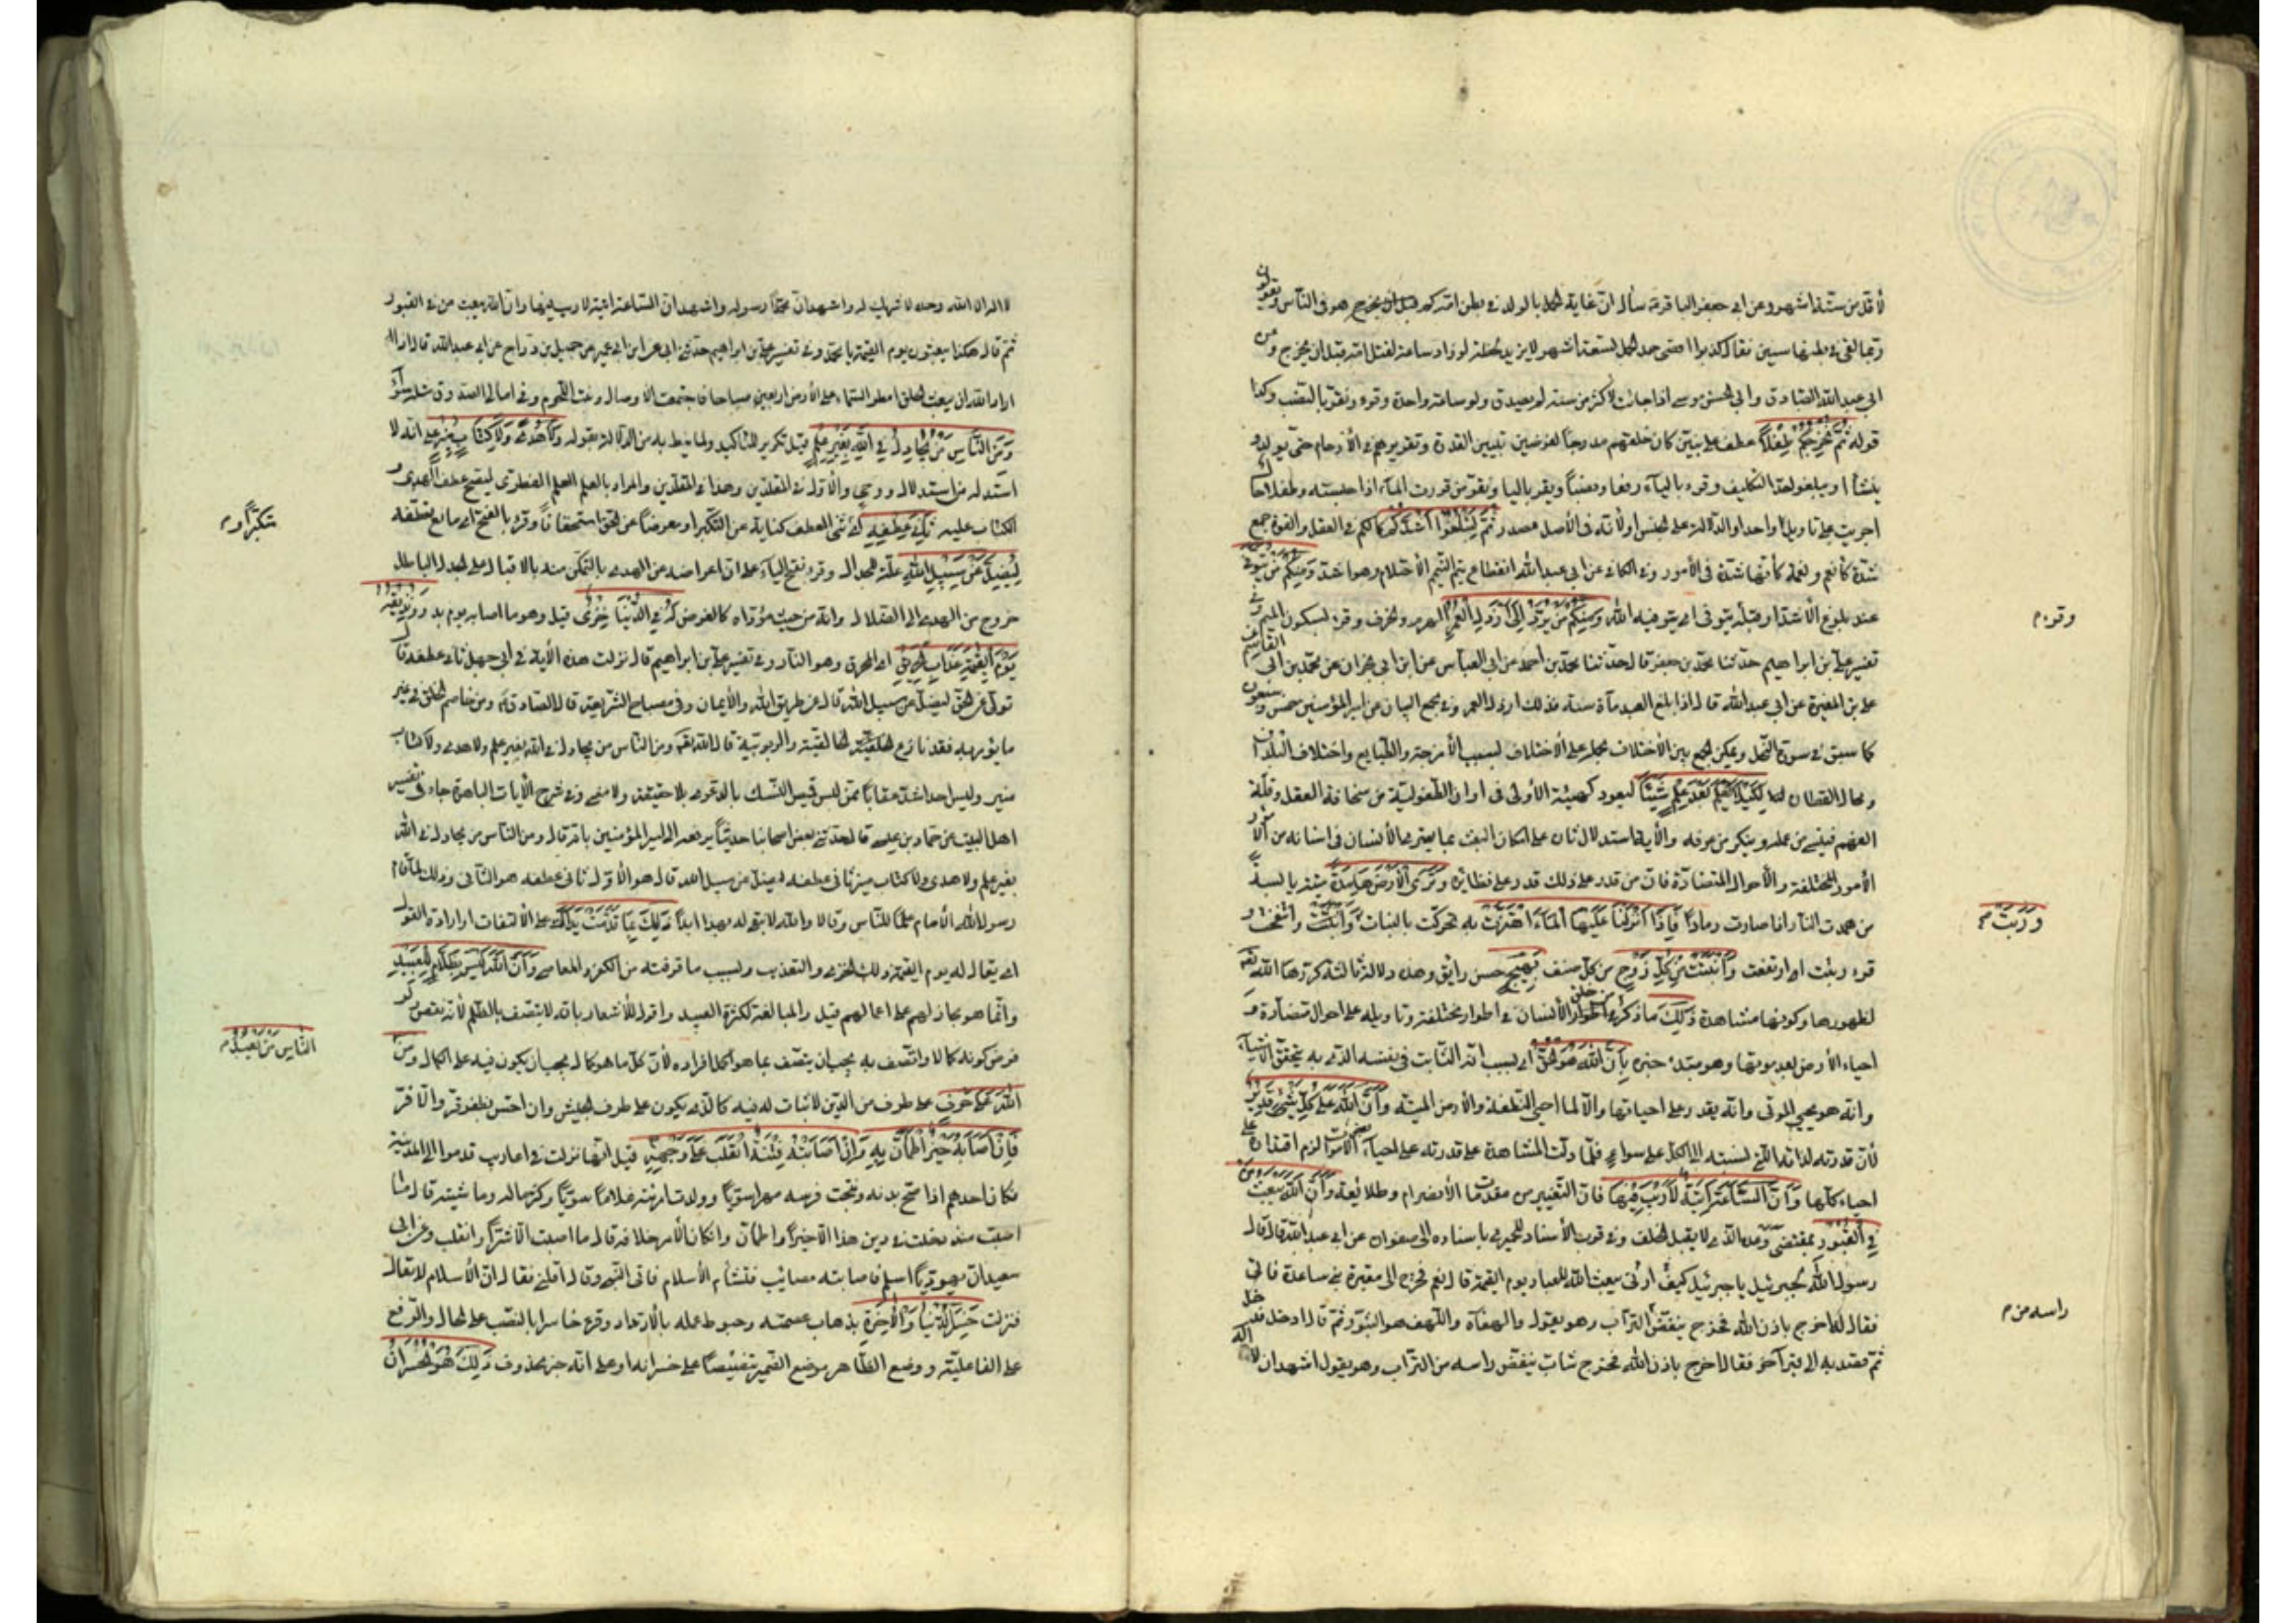 لأقل من ستة اشهر وعن ابى جعفر الباقر سأله ان غاية الحمل بالولد فى بطن امه كم يخرج هو فى الناس ويقولون
ربما لقى فى بطنها سنين فقال كذبوا اقصى حد الحمل تسعة اشهر لا يزيد لحظة لو زاد ساعة لقتل امه قبل ان يخرج وعن
ابى عبد الله الصادق وابى الحسن موسى اذا جائت لاكثر من سنة لم يصدق ولو ساعة واحدة وقرء ونقر بالنصب وكذا
قوله ثُمَّ نُخْرِجُكُمْ طِفْلًا عطف على نبين كان خلقهم مدرجا لغرضين تبيين القدرة وتقريرهم فى الأرحام حتى يولدوا
ينشأوا ويبلغوا حد التكليف وقرء بالياء رفعا ونصبا ويقر باليا ونقر من قررت الماء اذا صببته وطفلا حال
اجريت على تأويل كل واحد او الدلالة على الجنس او لأنه فى الأصل مصدر ثُمَّ لِتَبْلُغُوا أَشُدَّكُمْ كمالكم فى العقل والقوة جمع
شدة كأنعم ونعمة كأنها شدة فى الأمور وفى الكافى عن ابى عبد الله انقطاع يتم اليتيم الاحتلام وهو اشده وَمِنْكُمْ مَنْ يُتَوَفَّى
عند بلوغ الأشد او قبله يتوفى اى يتوفيه الله وَمِنْكُمْ مَنْ يُرَدُّ إِلَى أَرْذَلِ الْعُمُرِ الهرم والخرف وقرء بسكون الميم وفى
تفسير على بن ابراهيم حدثنا محمد بن جعفر قال حدثنا محمد بن احمد عن ابى العباس عن ابن ابى نجران عن محمد بن القاسم عن
على بن المغيرة عن ابى عبد الله قال اذا بلغ العبد مأة سنة فذلك ارذل العمر وفى مجمع البيان عن امير المؤمنين خمس وسبعون
كما سبق فى سورة النحل ويمكن الجمع بين الأختلاف بحمله على الأختلاف بسبب الأمزجة والطبايع واختلاف البلدان
لِكَيْلَا يَعْلَمَ بَعْدَ عِلْمٍ شَيْئًا ليعود كهيئته الأولى فى اوان الطفولية من سخافة العقل وقلة
الفهم فينسى من علمه وينكر من عرفه والآية استدلال ثان على امكان البعث بما يعترى الأنسان فى اسنانه من
الأمور المختلفة والأحوال المتضادة فان من قدر على ذلك قدر على نظائره وَتَرَى الْأَرْضَ هَامِدَةً ميتة يابسة
من همدت النار اذا صارت رمادا فَإِذَا أَنْزَلْنَا عَلَيْهَا الْمَاءَ اهْتَزَّتْ به تحركت بالنبات وانتفخت و
قرء ربئت اى ارتفعت وَأَنْبَتَتْ مِنْ كُلِّ زَوْجٍ من كل صنف بَهِيجٍ حسن رايق وهذه دلالة ثالثة كررها الله تعه
لظهورها وكونها مشاهدة ذَلِكَ ما ذكر من خلق الأنسان فى اطوار مختلفة وتأويله على احوال متضادة و
احياء الأرض بعد موتها وهو مبتدء خبره بِأَنَّ اللَّهَ هُوَ الْحَقُّ اى بسبب انه الثابت فى نفسه الذى به يتحقق الاشياء
وانه هو يحيى الموتى وانه يقدر على احيائها والا لما احيى النطفة والأرض الميتة وَأَنَّ اللَّهَ عَلَى كُلِّ شَيْءٍ قَدِيرٌ
لأن قدرته لذاته الذى نسبته الى الكل على سواء فلما دلت المشاهدة على قدرته على احياء بعض الأموات لزم اقتداره على
احياء كلها وَأَنَّ السَّاعَةَ آتِيَةٌ لَا رَيْبَ فِيهَا فان التغيير من مقدمات الأنصرام وطلائعه وَأَنَّ اللَّهَ يَبْعَثُ مَنْ
فِي الْقُبُورِ بمقتضى وعده الذى لا يقبل الخلف وفى قرب الأسناد للحميرى باسناده الى صفوان عن ابى عبد الله قال قال
رسول الله لجبرئيل يا جبرئيل كيف ارنى يبعث الله العباد يوم القيمة قال نعم فخرج الى مقبرة بنى ساعدة فاتى
فقال له اخرج باذن الله فخرج ينفض التراب وهو يقول والهفاه واللهف هو الثبور ثم قال ادخل فدخل
ثم قصد به الى قبر آخر فقال اخرج باذن الله فخرج شاب ينفض راسه من التراب وهو يقول اشهد ان لا اله
وقرء م
وَرَبَتْ م
راسه من م
لا اله الا الله وحده لا شريك له واشهد ان محمدا رسوله واشهد ان الساعة اتية لا ريب فيها وان الله يبعث من فى القبور
ثم قال هكذا يبعثون يوم القيمة يا محمد وفى تفسير على بن ابراهيم حدثنى ابى عن ابن ابى عمير عن جميل بن دراج عن ابى عبد الله قال اذا
اراد الله ان يبعث الخلق امطر السماء على الأرض اربعين صباحا فاجتمعت الاوصال ونبتت اللحوم وفى امالى الصدوق مثله سواء
وَمِنَ النَّاسِ مَنْ يُجَادِلُ فِي اللَّهِ بِغَيْرِ عِلْمٍ قيل تكرير للتاكيد ولما نيط به من الدلالة بقوله وَلَا هُدًى وَلَا كِتَابٍ مُنِيرٍ على انه لا
استدله من استدلال او وحى والأول فى المقلدين وهذا فى المقلدين والمراد بالعلم العلم الفطرى ليصح عطف الهدى و
الكتاب عليه ثَانِيَ عِطْفِهِ ثنى العطف كناية عن التكبر او معرضا عن الحق استخفافا وقرء بالفتح اى مانع تعطفه
لِيُضِلَّ عَنْ سَبِيلِ اللَّهِ علة للجدال وقرء بفتح الياء على ان اعراضه عن الهدى بالتمكن منه بالاقبال على الجدال الباطل
خروج من الهدى الى الضلال وانه من حيث مؤداه كالغرض لَهُ فِي الدُّنْيَا خِزْيٌ قيل وهو ما اصابه يوم بدر وَنُذِيقُهُ
يَوْمَ الْقِيمَةِ عَذَابَ الْحَرِيقِ اى المحرق وهو النار وفى تفسير على بن ابراهيم قال نزلت هذه الأية فى ابى جهل ثانى عطفه قال
تولى عن الحق ليضل عن سبيل الله قال عن طريق الله والأيمان وفى مصباح الشريعة قال الصادق ومن خاصم الخلق فى غير
ما يؤمر به فقد نازع الخالقية والربوبية قال الله تعه ومن الناس من يجادل فى الله بغير علم ولا هدى ولا كتاب
منير وليس احد اشد عقابا ممن لبس قميص النسك بالدعوى بلا حقيقة ولا معنى وفى شرح الآيات الباهرة جاء فى تفسير
اهل البيت عن حماد بن عيسى قال حدثنى بعض اصحابنا حديثا يرفعه الى امير المؤمنين قال ومن الناس من يجادل فى الله
بغير علم ولا هدى ولا كتاب منير ثانى عطفه ليضل عن سبيل الله قال هو الأول ثانى عطفه هو الثانى وذلك لما اقام
رسول الله الأمام علما للناس وقالا والله لا نفى له بهذا ابدا ذَلِكَ بِمَا قَدَّمَتْ يَدَاكَ على الالتفات او ارادة القول
اى يقال له يوم القيمة ذلك الخزى والتعذيب بسبب ما اقترفته من الكفر والمعاصى وَأَنَّ اللَّهَ لَيْسَ بِظَلَّامٍ لِلْعَبِيدِ
وانما هو مجاز لهم على اعمالهم قيل والمبالغة لكثرة العبيد واقول للأشعار بانه لا يتصف بالظلم لأنه نقص ولو
فرض كونه كمالا واتصف به يجب ان يتصف بما هو اكمل افراده لأن كل ما هو كمال يجب ان يكون فيه على الكمال وَمِنَ
اللَّهَ عَلَى حَرْفٍ على طرف من الدين لا ثبات له فيه كالذى يكون على طرف الجيش وان احس بظفر قر والا فر
فَإِنْ أَصَابَهُ خَيْرٌ اطْمَأَنَّ بِهِ وَإِنْ أَصَابَتْهُ فِتْنَةٌ انْقَلَبَ عَلَى وَجْهِهِ قيل انها نزلت فى اعاريب قدموا الى المدينة
فكان احدهم اذا صح بدنه ونتجت فرسه مهرا سويا وولدت امرئته غلاما سويا وكثر ماله وما شيته قال ما
اصبت منذ دخلت فى دين هذا الا خيرا واطمأن وان كان الأمر خلافه قال ما اصبت الا شرا وانقلب وعن ابى
سعيد ان يهوديا اسلم فاصابته مصائب فتشأم الأسلام فاتى النبى وقال اقلنى فقال ان الأسلام لا يقال
فنزلت خَسِرَ الدُّنْيَا وَالْآخِرَةَ بذهاب عصمته وحبوط عمله بالأرتداد وقرء خاسرا بالنصب على الحال والرفع
على الفاعلية ووضع الظاهر موضع الضمير تنصيصا على خسرانه او على انه خبر محذوف ذَلِكَ هُوَ الْخُسْرَانُ
تكبرا و م
النَّاسِ مَنْ يَعْبُدُ م